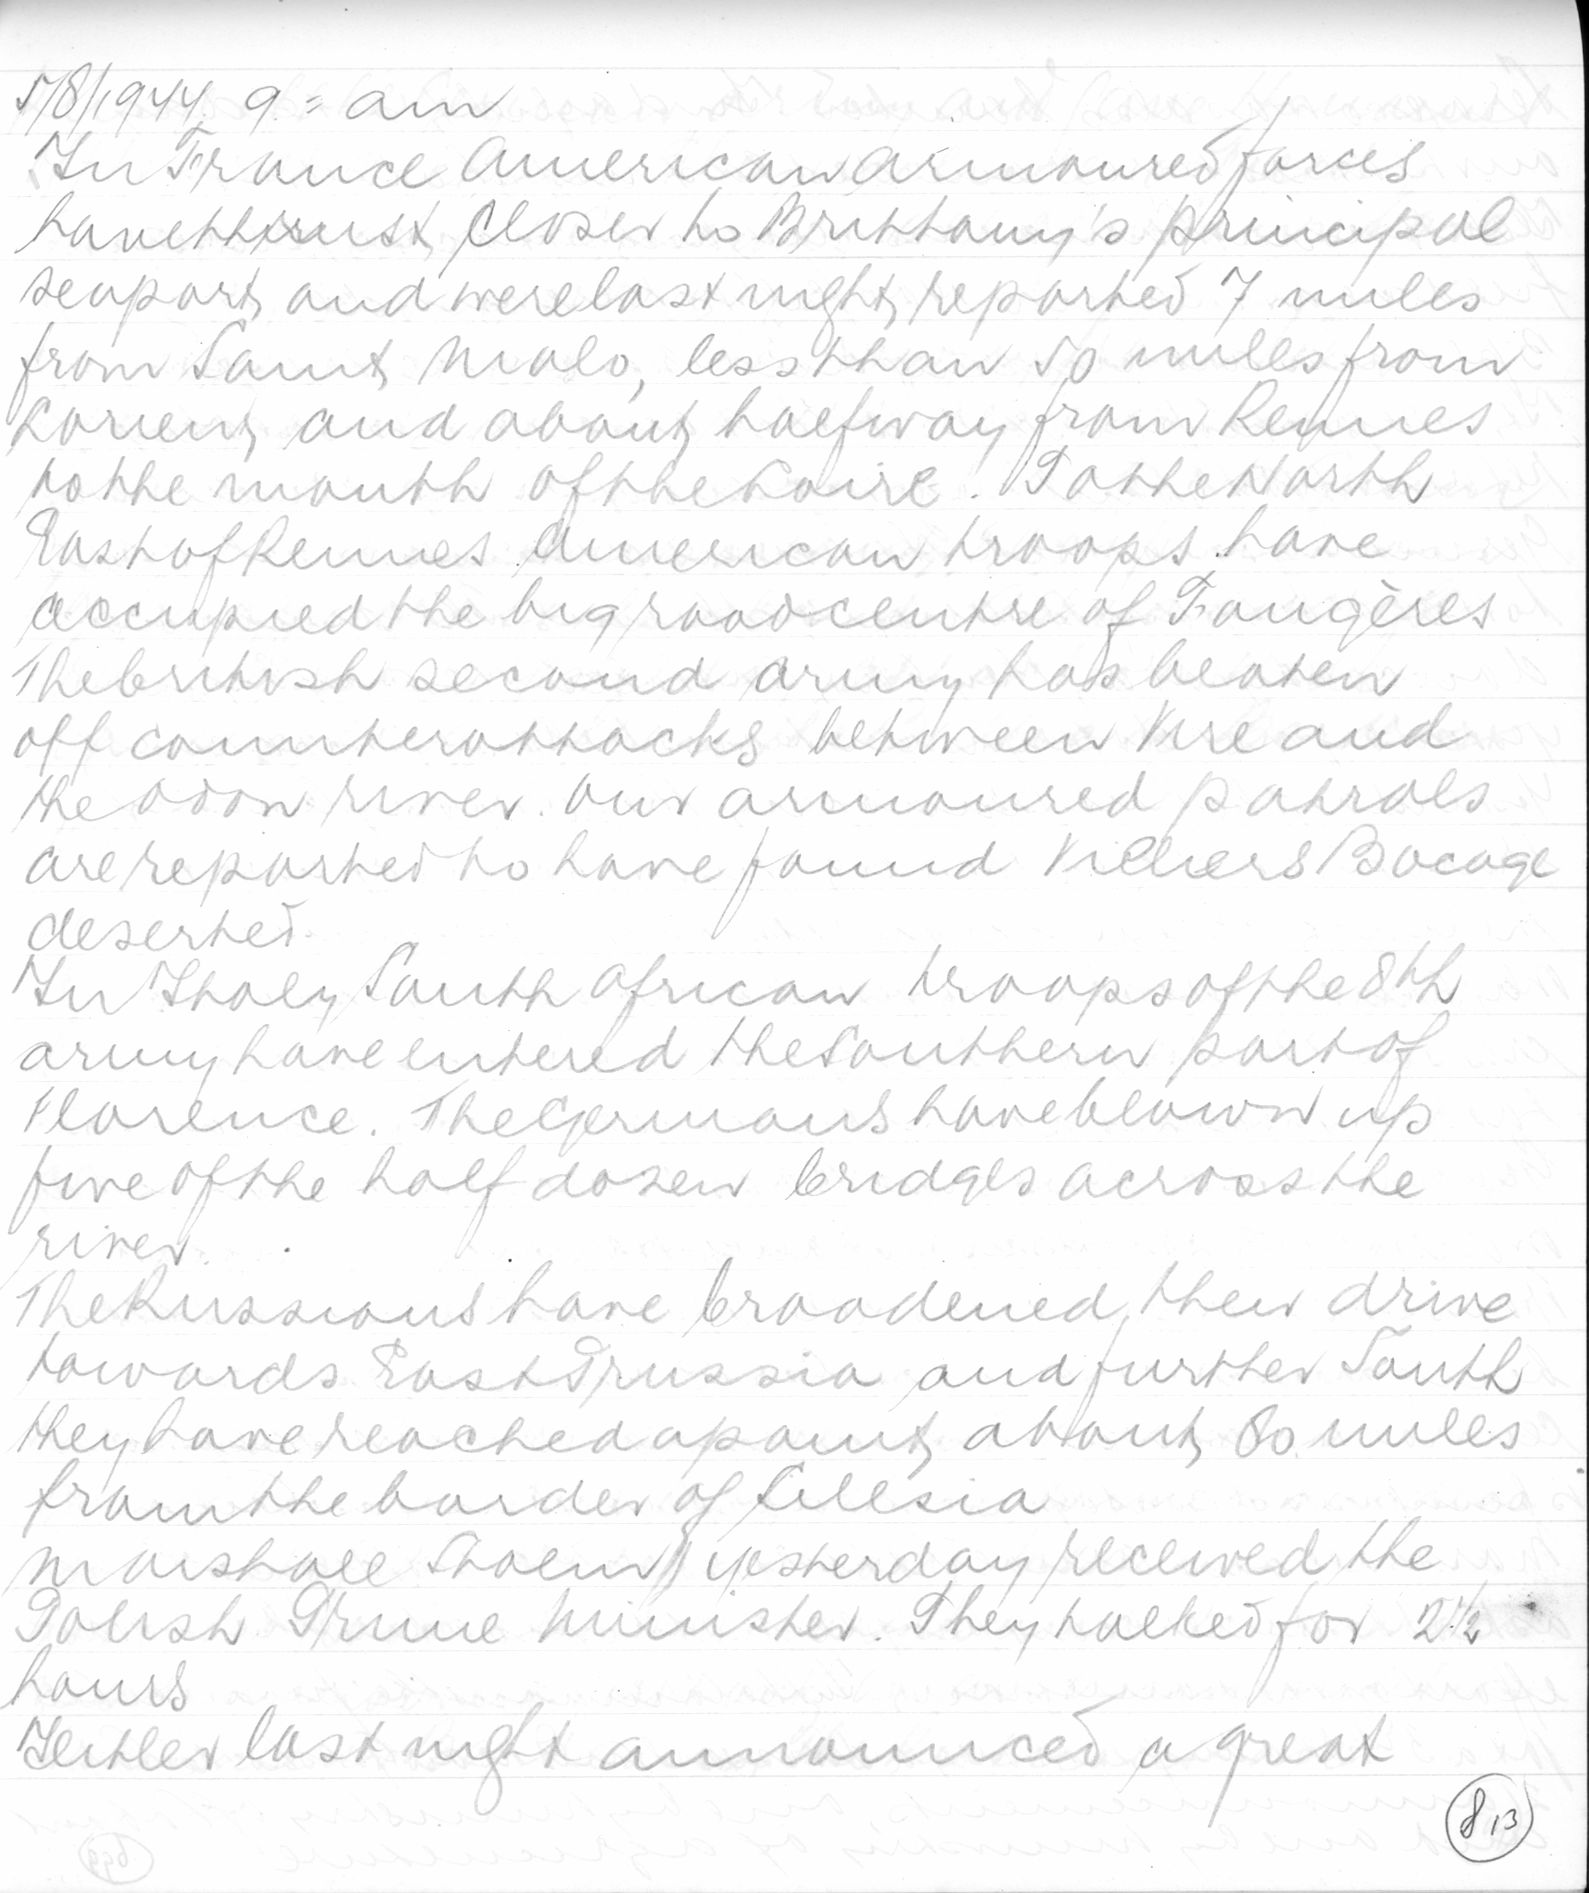 5/8/1944. 9= am
In France American armoured forces
have thrust closer to Brittany's principal
seaport and were last night reported 7 miles
from Saint Malo, less than 50 miles from
Lorient and about halfway from Rennes
to the mouth of the Loire. To the North
East of Rennes American troops have
occupied the big road centre of Fougères
The british second army has beaten
off counterattacks between Vire and
the Odon river. Our armoured patrols
are reported to have found Villiers Bocage
deserted.
In Italy South African troops of the 8th
army have entered the Southern part of
Florence. The Germans have blown up
five of the half dozen bridges across the
river.
The Russians have broadened their drive
towards East Prussia and further South
they have reached a point about 80 miles
from the border of Silesia
Marshall Stalin yesterday received the
Polish Prime Minister. They talked for 2 1/2
hours
Hitler last night announced a great
813